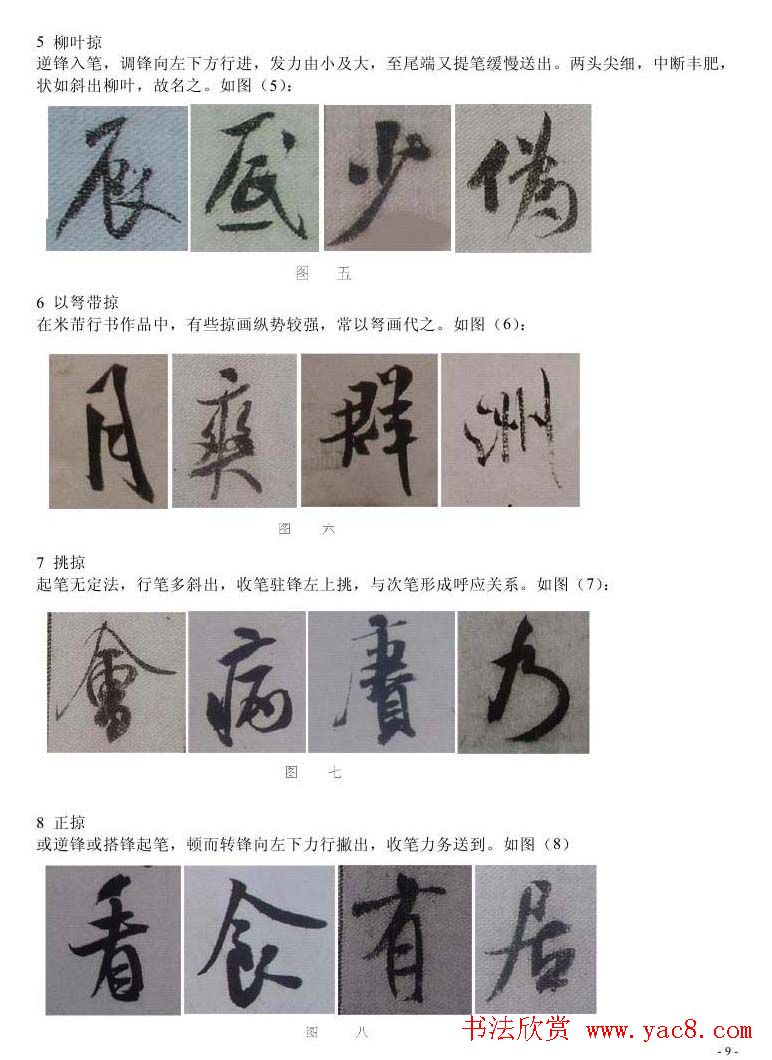 5 柳叶掠
逆锋入笔，调锋向左下方行进，发力由小及大，至尾端又提笔缓慢送出。两头尖细，中断丰肥，
状如斜出柳叶，故名之。如图（5）：
辰 底 少 偽
图 五
6 以弩带掠
在米芾行书作品中，有些掠画纵势较强，常以弩画代之。如图（6）：
月 爽 群 洲
图 六
7 挑掠
起笔无定法，行笔多斜出，收笔驻锋左上挑，与次笔形成呼应关系。如图（7）：
會 病 賡 乃
图 七
8 正掠
或逆锋或搭锋起笔，顿而转锋向左下力行撇出，收笔力务送到。如图（8）
看 食 有 居
图 八
书法欣赏 www.yac8.com
- 9 -